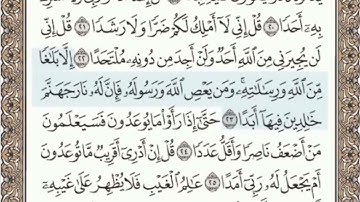 بِهِۦٓ أَحَدًا ٢٠ قُلۡ إِنِّي لَآ أَمۡلِكُ لَكُمۡ ضَرًّا وَلَا رَشَدًا ٢١ قُلۡ إِنِّي
لَن يُجِيرَنِي مِنَ ٱللَّهِ أَحَدٌ وَلَنۡ أَجِدَ مِن دُونِهِۦ مُلۡتَحَدًا ٢٢ إِلَّا بَلَٰغًا
مِّنَ ٱللَّهِ وَرِسَٰلَٰتِهِۦۚ وَمَن يَعۡصِ ٱللَّهَ وَرَسُولَهُۥ فَإِنَّ لَهُۥ نَارَ جَهَنَّمَ
خَٰلِدِينَ فِيهَآ أَبَدًا ٢٣ حَتَّىٰٓ إِذَا رَأَوۡاْ مَا يُوعَدُونَ فَسَيَعۡلَمُونَ
مَنۡ أَضۡعَفُ نَاصِرًا وَأَقَلُّ عَدَدًا ٢٤ قُلۡ إِنۡ أَدۡرِيٓ أَقَرِيبٌ مَّا تُوعَدُونَ
أَمۡ يَجۡعَلُ لَهُۥ رَبِّيٓ أَمَدًا ٢٥ عَٰلِمُ ٱلۡغَيۡبِ فَلَا يُظۡهِرُ عَلَىٰ غَيۡبِهِۦٓ